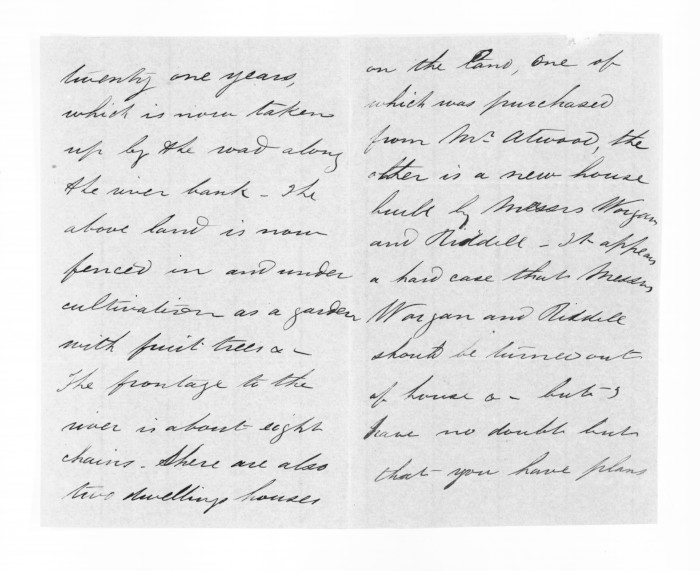 twenty one years,
which is now taken
up by the road along
the river bank - The
above land is now
fenced in and under
cultivation as a garden
with fruit trees &-
The frontage to the
river is about eight
chains. There are also
two dwellings houses
on the land, one of
which was purchased
from Mr. Atwood, the
other is a new house
built by Messrs Worgan
and Riddell - It appears
a hard case that Messrs
Worgan and Riddell
should be turned out
of house & - but I
have no doubt but
that you have plans